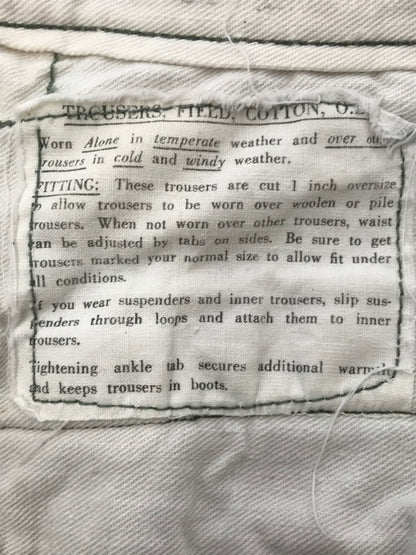 TROUSERS, FIELD, COTTON, O.
Worn Alone in temperate weather and over
trousers in cold and windy weather.
FITTING: These trousers are cut 1 inch oversize
to allow trousers to be worn over woolen or pile
trousers. When not worn over other trousers, waist
can be adjusted by tabs on sides. Be sure to get
trousers marked your normal size to allow fit under
all conditions.
If you wear suspenders and inner trousers, slip sus-
penders through loops and attach them to inner
trousers.
Tightening ankle tab secures additional warmth
and keeps trousers in boots.